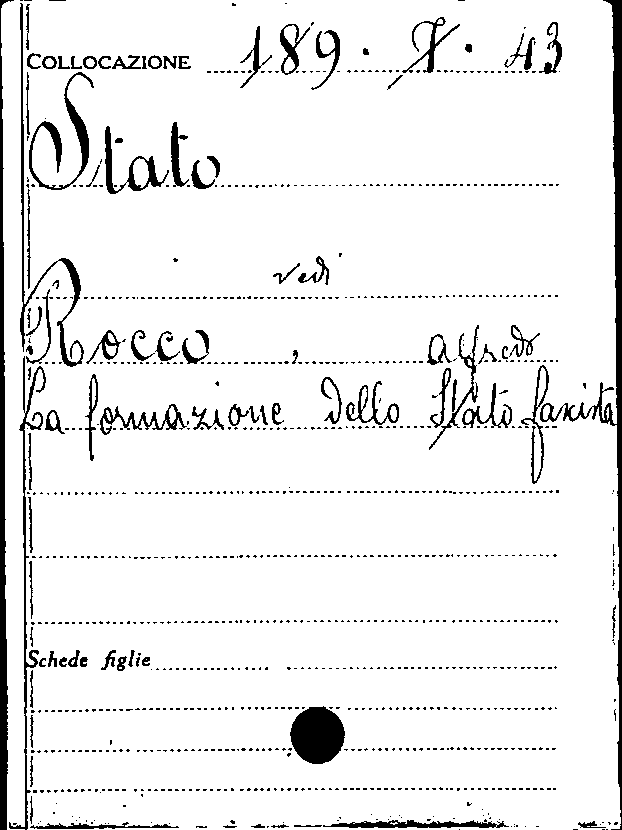 COLLOCAZIONE 189. I. 43
Stato
vedi
Rocco, Alfredo
La formazione dello Stato fascista
Schede figlie